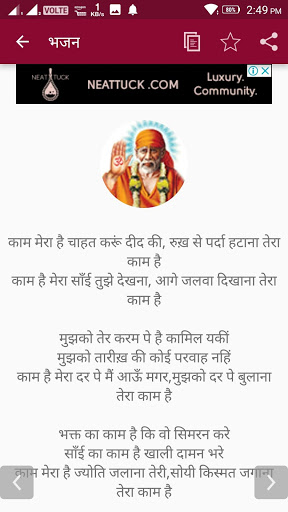 VOLTE 1 KB/s 2:49 PM
भजन
NEATTUCK
NEATTUCK .COM
Luxury.
Community.
ॐ
काम मेरा है चाहत करूं दीद की, रुख़ से पर्दा हटाना तेरा
काम है
काम है मेरा साँईं तुझे देखना, आगे जलवा दिखाना तेरा
काम है
मुझको तेर करम पे है कामिल यकीं
मुझको तारीख़ की कोई परवाह नहिं
काम है मेरा दर पे मैं आऊँ मगर,मुझको दर पे बुलाना
तेरा काम है
भक्त का काम है कि वो सिमरन करे
साँई का काम है खाली दामन भरे
काम मेरा है ज्योति जलाना तेरी,सोयी किस्मत जगाना
तेरा काम है